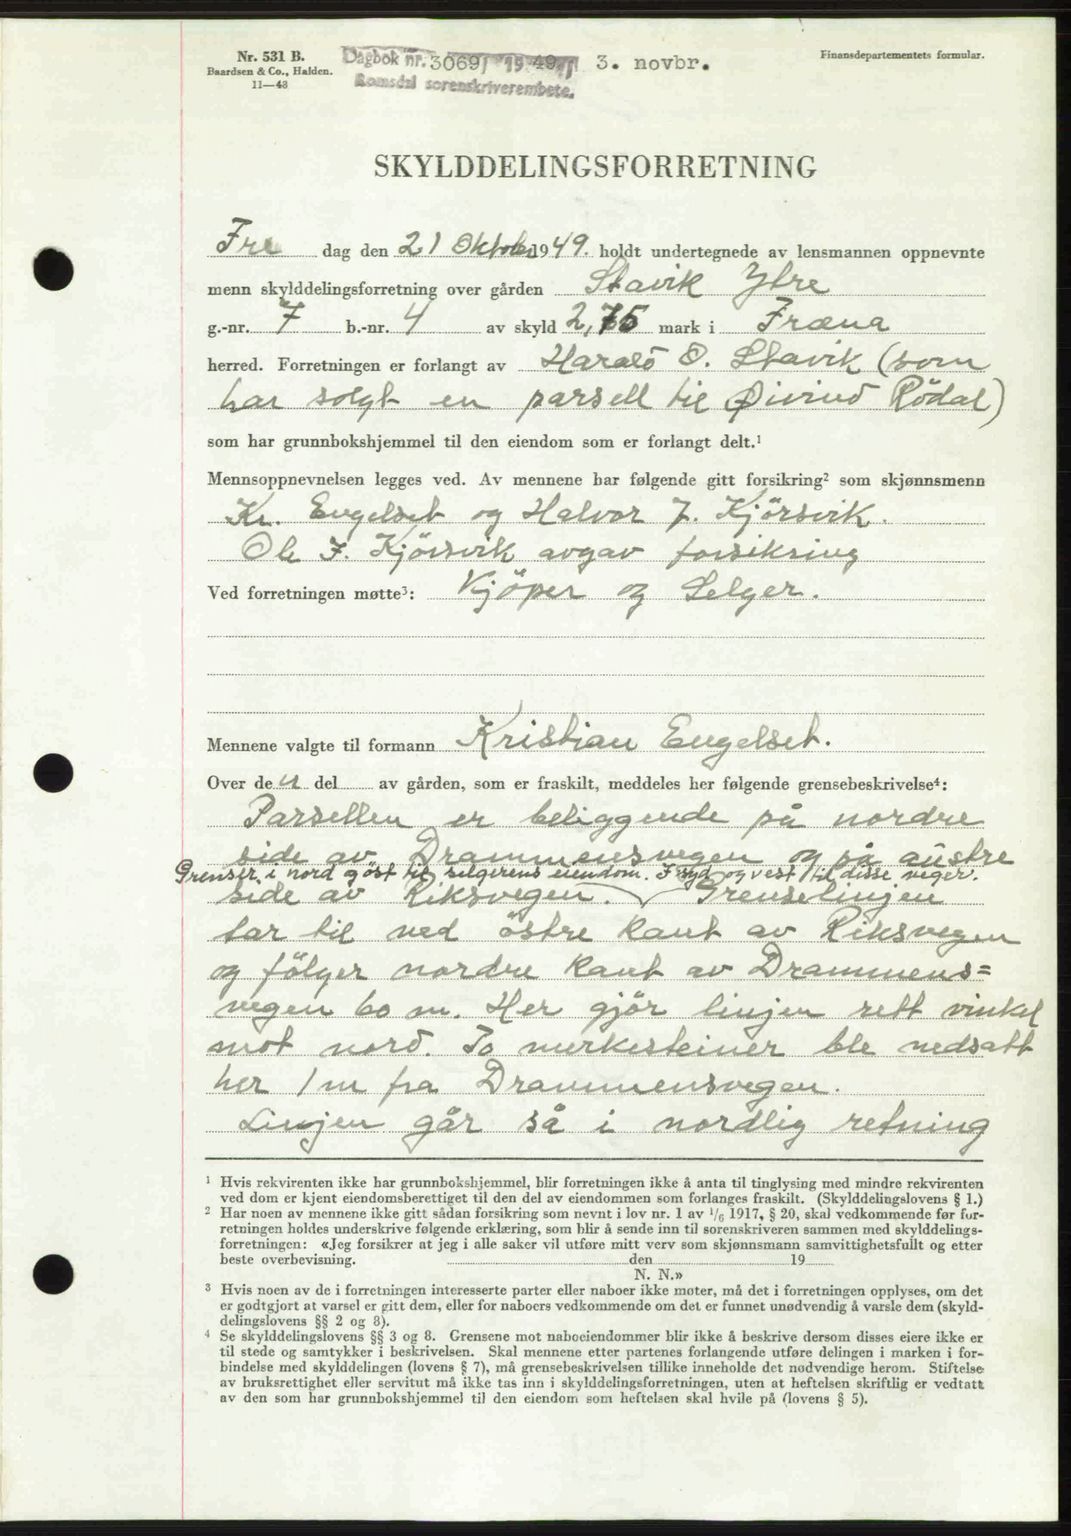 Nr. 531 B.
Baardsen & Co., Halden.
11—43
Dagbok nr. 3069 1949 3. novbr.
Romsdal sorenskriverembete.
Finansdepartementets formular.
SKYLDDELINGSFORRETNING
Fre dag den 21 Oktober 1949. holdt undertegnede av lensmannen oppnevnte
menn skylddelingsforretning over gården Stavik Ytre
g.-nr. 7 b.-nr. 4 av skyld 2,75 mark i Fræna
herred. Forretningen er forlangt av Harald O. Stavik (som
har solgt en parsell til Øivind Rödal)
som har grunnbokshjemmel til den eiendom som er forlangt delt.¹
Mennsoppnevnelsen legges ved. Av mennene har følgende gitt forsikring² som skjønnsmenn
Kr. Engelset og Halvor J. Kjörsvik.
Ole J. Kjörsvik avgav forsikring
Ved forretningen møtte³: Kjöper og Selger.
Mennene valgte til formann Kristian Engelset.
Over den del av gården, som er fraskilt, meddeles her følgende grensebeskrivelse⁴:
Parsellen er beliggende på nordre
side av Drammensvegen og på austre
Grenser i nord og öst til selgerens eiendom. I syd og vest til disse veger.
side av Riksvegen. Grenselinjen
tar til ved östre kant av Riksvegen
og fölger nordre kant av Drammens=
vegen 60 m. Her gjör linjen rett vinkel
mot nord. To merkesteiner ble nedsatt
her 1 m fra Drammensvegen.
Linjen går så i nordlig retning
¹ Hvis rekvirenten ikke har grunnbokshjemmel, blir forretningen ikke å anta til tinglysing med mindre rekvirenten
ved dom er kjent eiendomsberettiget til den del av eiendommen som forlanges fraskilt. (Skylddelingslovens § 1.)
² Har noen av mennene ikke gitt sådan forsikring som nevnt i lov nr. 1 av 1/6 1917, § 20, skal vedkommende før for-
retningen holdes underskrive følgende erklæring, som blir å sende inn til sorenskriveren sammen med skylddelings-
forretningen: «Jeg forsikrer at jeg i alle saker vil utføre mitt verv som skjønnsmann samvittighetsfullt og etter
beste overbevisning. den 19
N. N.»
³ Hvis noen av de i forretningen interesserte parter eller naboer ikke møter, må det i forretningen opplyses, om det
er godtgjort at varsel er gitt dem, eller for naboers vedkommende om det er funnet unødvendig å varsle dem (skyld-
delingslovens §§ 2 og 3).
⁴ Se skylddelingslovens §§ 3 og 8. Grensene mot naboeiendommer blir ikke å beskrive dersom disses eiere ikke er
til stede og samtykker i beskrivelsen. Skal mennene etter partenes forlangende utføre delingen i marken i for-
bindelse med skylddelingen (lovens § 7), må grensebeskrivelsen tillike inneholde det nødvendige herom. Stiftelse
av bruksrettighet eller servitut må ikke tas inn i skylddelingsforretningen, uten at heftelsen skriftlig er vedtatt
av den som har grunnbokshjemmel til den eiendom som heftelsen skal hvile på (lovens § 5).